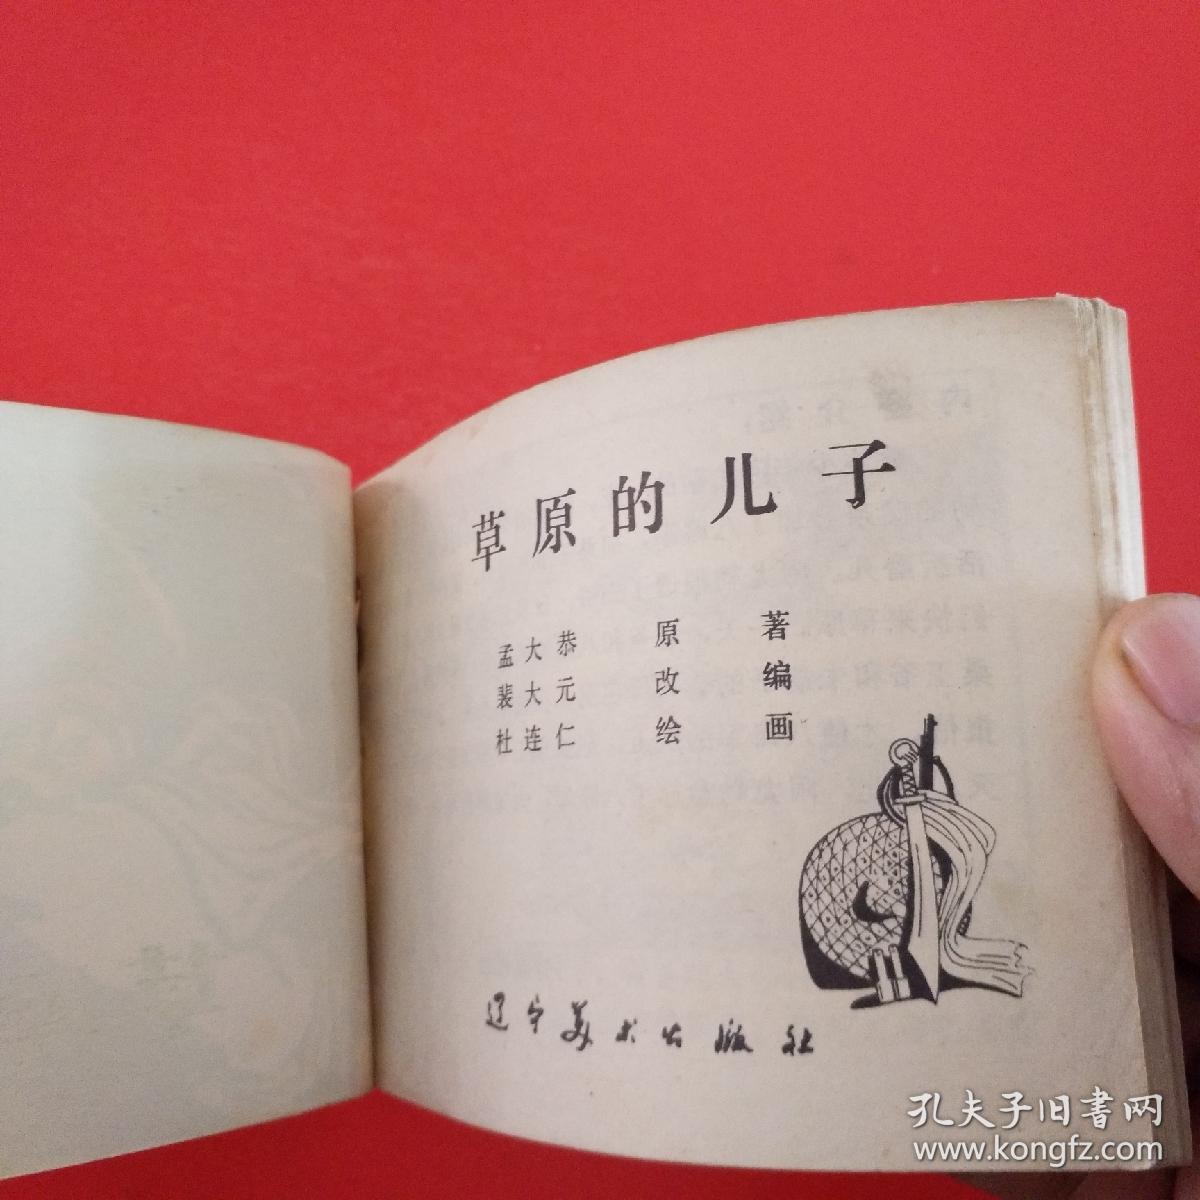 草原的儿子
孟大恭 原著
裴大元 改编
杜连仁 绘画
辽宁美术出版社
孔夫子旧书网
www.kongfz.com